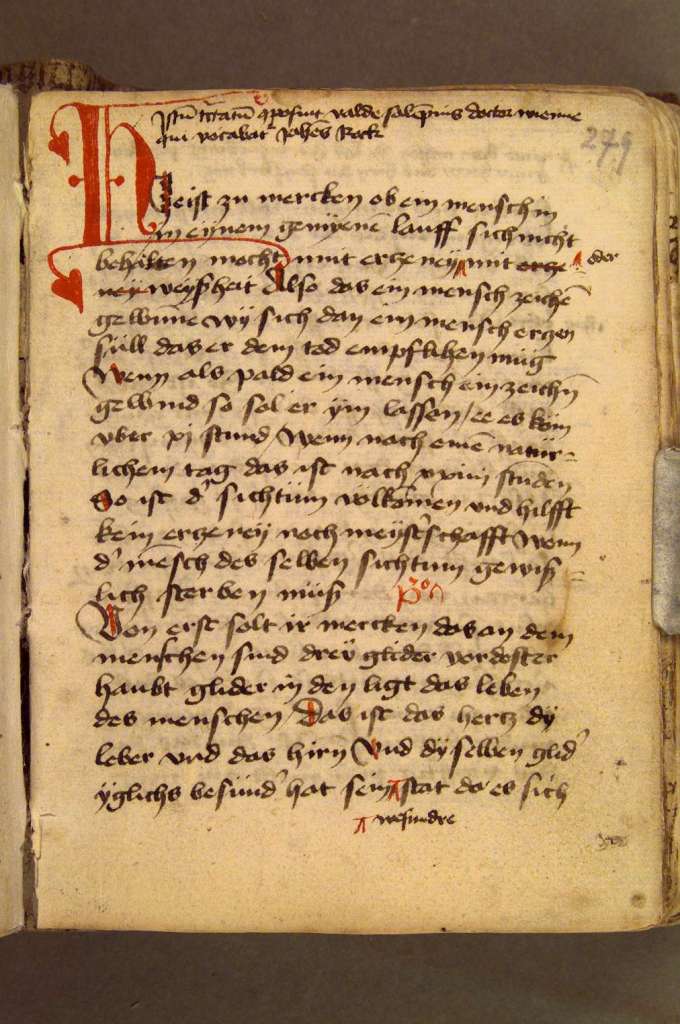 Istū tractatū ꝯposuit valde solēpnis doctor wienne
qui vocabatʳ Johēs Rock
279
Hye ist zu mercken ob ein mensch in
in eynem gemyenē lauff sich nicht
behalten mocht mit ertzeney mit ertze
oder
ney weyßheit Also das ein mensch zeichē
gewinne wy sich dan ein mensch ergen
süll das er dem tod empflihen müg
Wenn als pald ein mensch ein zeichn̄
gewind so sol er ym lassen / ee es köm
vber xij stund Wenn nach einē natür⸗
lichem tag das ist nach xxiiij stunden
So ist d' sichtum volkomen vnd hilfft
kein ertzeney noch meyst'schafft Wenn
d' mēsch des selben sichtum gewiß⸗
lich sterben müß
Pᵒ
Von erst solt ir mercken das an dem
menschen sind dreÿ glider vordoster
haubt glider in den ligt das leben
des menschen / Das ist das hertz dÿ
leber vnd das hirn Vnd dÿ selben glid'
ÿglichs besund' hat sein stat do es sich
wesundre